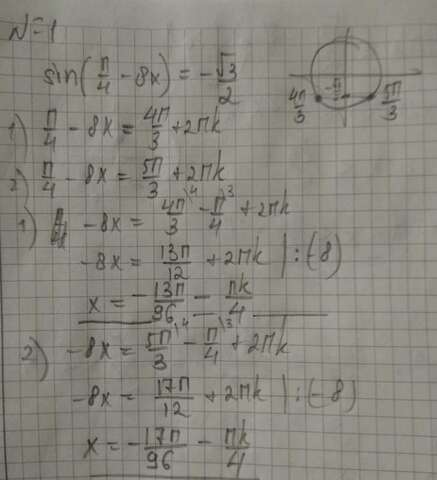 N=1
sin(π/4 - 8x) = -√3/2
4π/3 5π/3
1) π/4 - 8x = 4π/3 + 2πk
2) π/4 - 8x = 5π/3 + 2πk
1) -8x = 4π/3 \4 - π/4 \3 + 2πk
-8x = 13π/12 + 2πk | : (-8)
x = -13π/96 - πk/4
2) -8x = 5π/3 \4 - π/4 \3 + 2πk
-8x = 17π/12 + 2πk | : (-8)
x = -17π/96 - πk/4